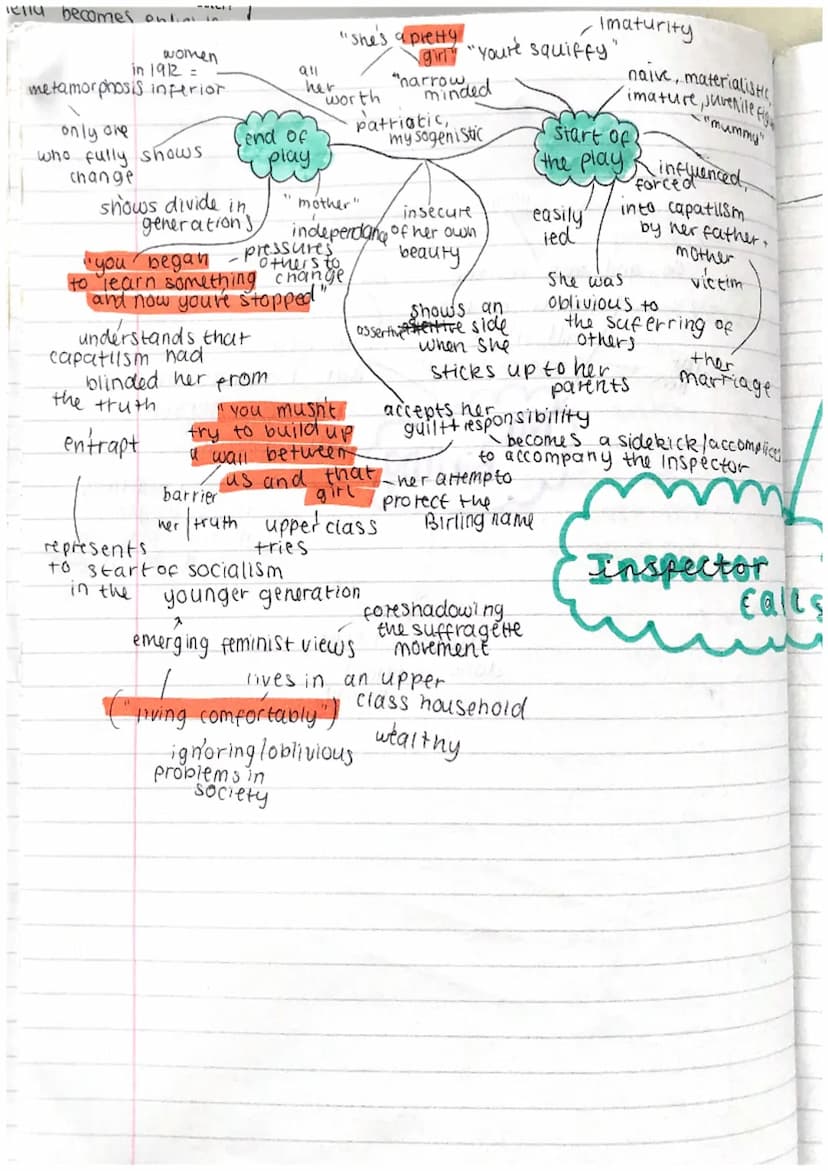 becomes
"she's a pretty
girl"
"you're squiffy"
Imaturity
women
in 1912 =
inferior
metamorphosis
all
her
worth
"narrow
minded
naive, materialistic
imature, juvenile
"mummy"
patriotic,
mysogenistic
end of
play
start of
the play
only one
who fully shows
change
shows divide in
generations
"mother"
independance
insecure
of her own
beauty
easily
led
influenced,
forced
into capatilsm
by her father,
mother
victim
ther
marriage
"you began
to learn something
and now you're stopped"
- pressures
others to
change
she was
oblivious to
the suferring of
others
shows an
assertive side
when she
sticks up to her
parents
understands that
capatilsm had
blinded her from
the truth
entrapt
"you musn't
try to build up
a wall between
us and that
girl
accepts her
guilt + responsibility
becomes a sidekick/accomplice
to accompany the inspector
her attemp to
protect the
Birling name
barrier
her | truth
upper class
tries
represents
to start of socialism
in the younger generation
emerging feminist views
foreshadowing
the suffragette
movement
lives in an upper
class household
wealthy
("living comfortably")
ignoring/oblivious
problems in
society
Inspector
calls